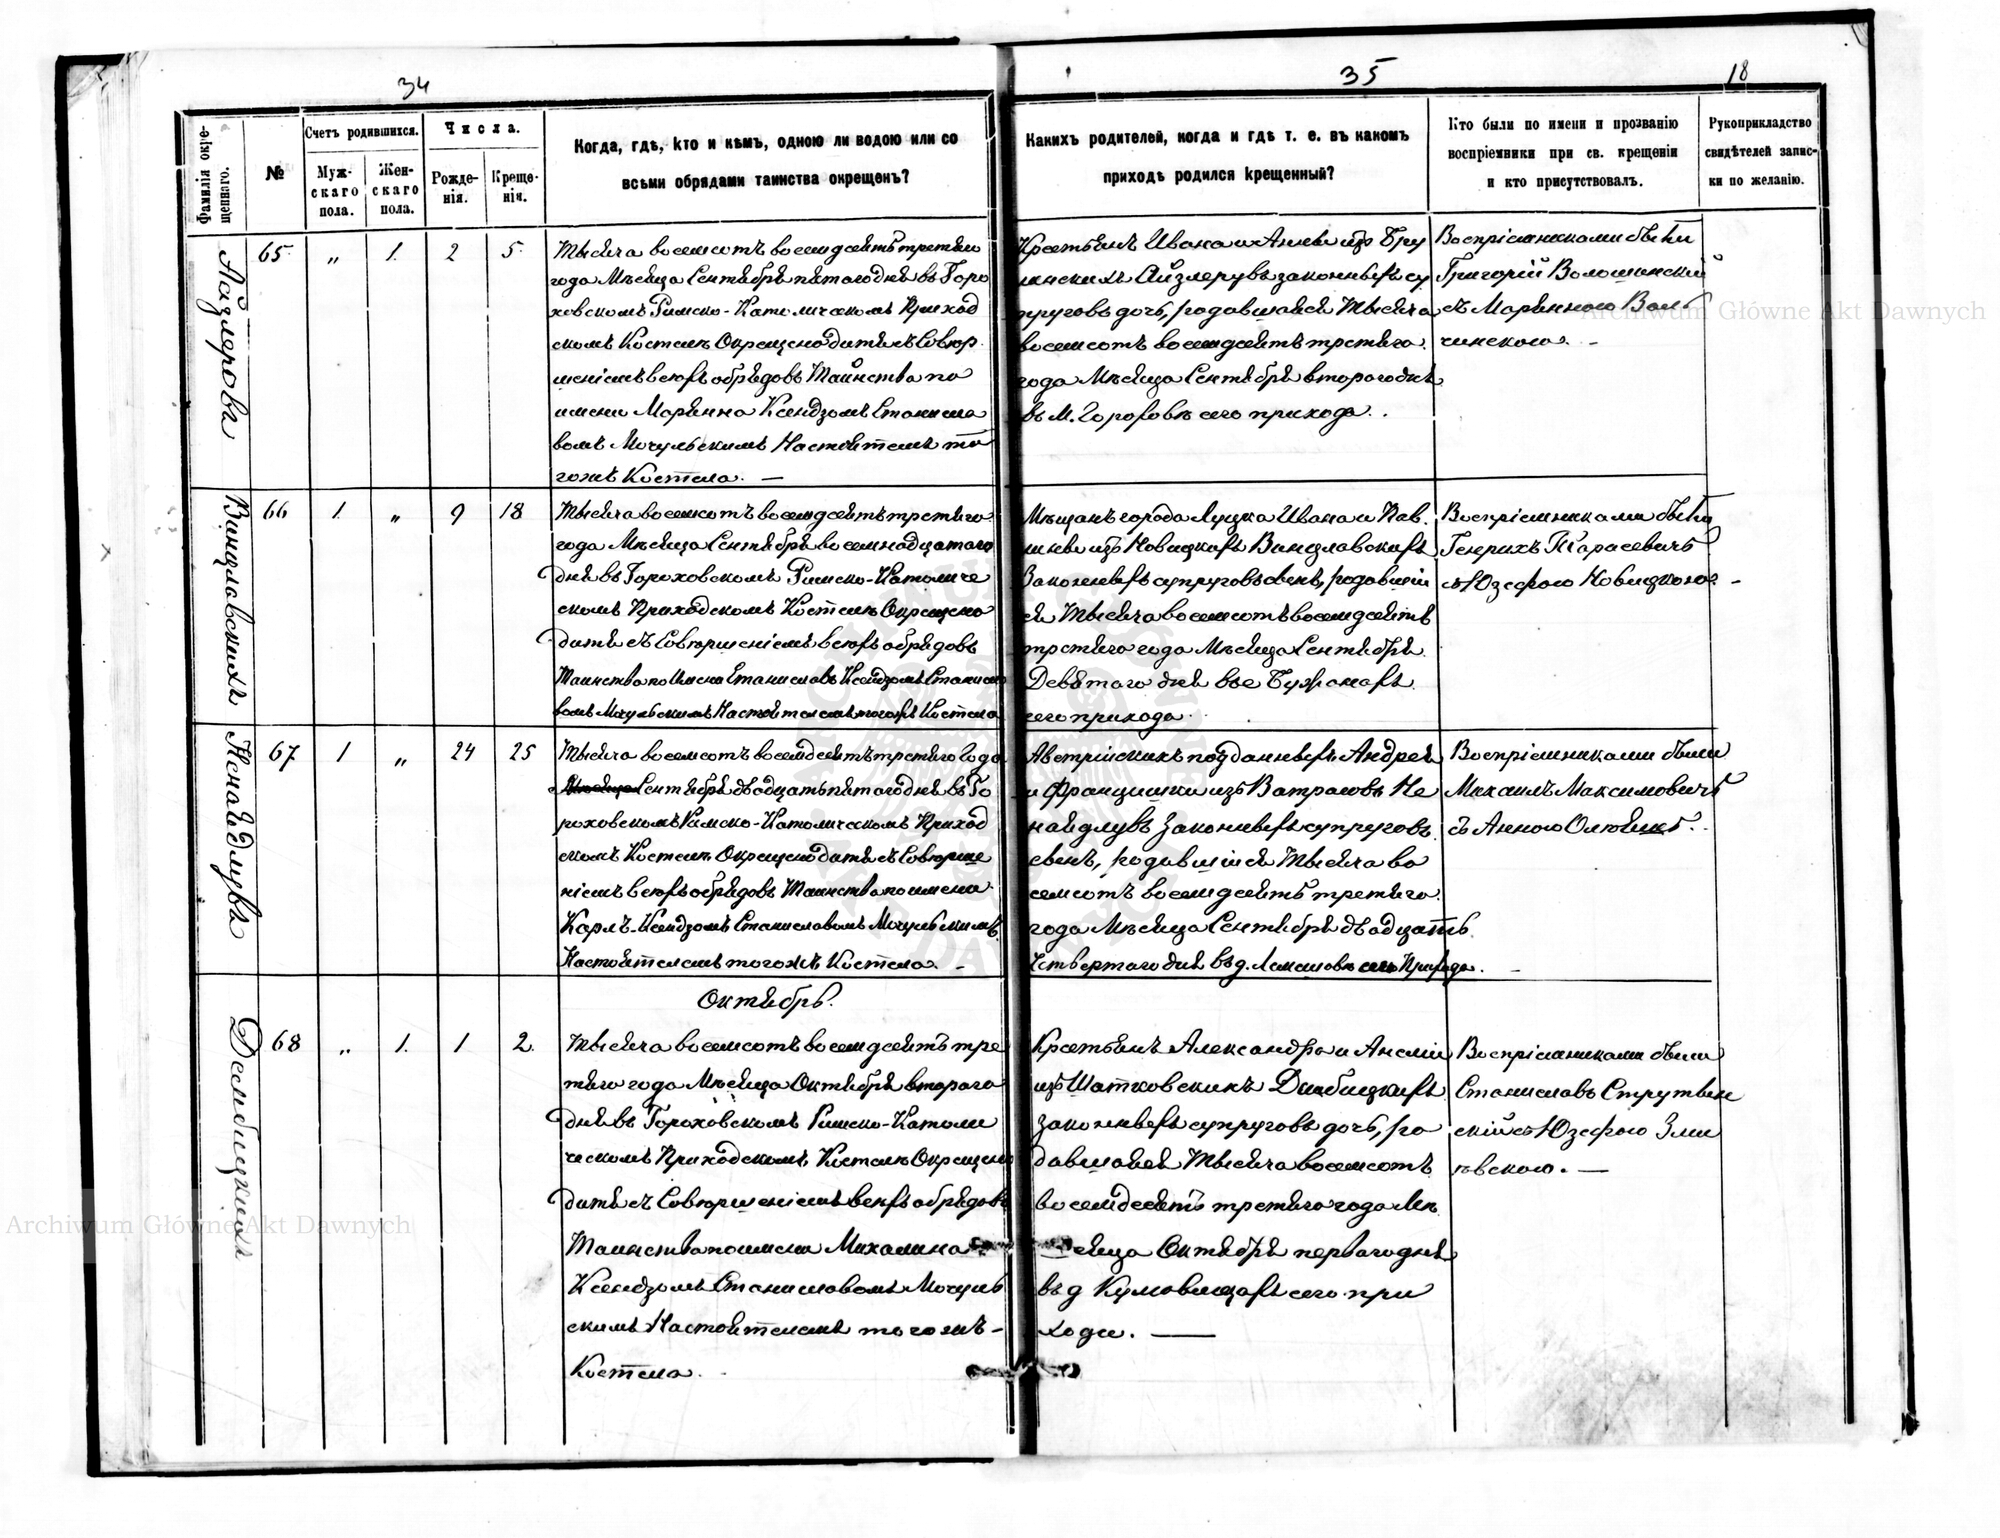 34
35
18
Фамилія окре-
щеннаго.
№
Счетъ родившихся.
Муж-
скаго
пола.
Жен-
скаго
пола.
Числа.
Рожде-
нія.
Креще-
нія.
Когда, гдѣ, кто и кѣмъ, одною ли водою или со
всѣми обрядами таинства окрещенъ?
Какихъ родителей, когда и гдѣ т. е. въ какомъ
приходѣ родился крещенный?
Кто были по имени и прозванію
воспріемники при св. крещеніи
и кто присутствовалъ.
Рукоприкладство
свидѣтелей запис-
ки по желанію.
Айзлерова
65
„
1.
2
5.
Тысяча восемсотъ восемдсятъ третяго
года Мѣсяца Сентября пятого дня въ Горо
ховскомъ Римско-Католическомъ Приход
скомъ Костелѣ Окрещено дитя съ Совюр
шеніемъ всюхъ обрядовъ Таинства по
имени Марянна Ксендзомъ Станисла
вомъ Мочульскимъ Настоятелемъ то
гожъ Костела. —
Крестьянъ Ивана и Анны изъ
Айзлерувъ законныхъ су
пруговъ дочь, родавшаяся Тысяча
восемсотъ восемдсятъ третяго
года Мѣсяца Сентября второго дня
въ М. Гороховѣ сего прихода.
Воспріемниками были
Григорій Волошинскій
съ Марянною Валь
чинскою. –
Винцлавскихъ
66
1.
„
9
18
Тысяча восемсотъ восемдсятъ третяго
года Мѣсяца Сентября восемнадцатаго
дня въ Гороховскомъ Римско-Католиче
скомъ Приходскомъ Костелѣ Окрещено
дитя съ Совюршеніемъ всюхъ обрядовъ
Таинства по имени Станиславъ Ксендзомъ Станисла
вомъ Мочульскимъ Настоятелемъ тогожъ Костела
Мѣщанъ города Луцка Ивана и Пав.
лины изъ Новицкихъ Винцлавскихъ
Законныхъ супруговъ сынъ, родавшій
ся Тысяча восемсотъ восемдсятъ
третяго года Мѣсяца Сентября
Девятого дня въ с Бужанахъ
сего прихода.
Воспріемниками были
Генрихъ Тарасевичъ
съ Юзефою Новицкою. –
Ненайдлува
67
1
„
24
25
Тысяча восемсотъ восемдсятъ третяго Года
Мѣсяца Сентября двадцать пятого дня въ Го
роховскомъ Римско-Католическомъ Приход
скомъ Костелѣ Окрещено дитя съ Совюрше
ніемъ всюхъ обрядовъ Таинства по имени
Карлъ-Ксендзомъ Станиславомъ Мочульскимъ
Настоятелемъ тогожъ Костела. –
Австрійскихъ подданныхъ Андрея
и Францишки изъ Ватрасовъ Не
найдлувъ Законныхъ супруговъ
сынъ, родавшійся Тысяча во
семсотъ восемдсятъ третяго
года Мѣсяца Сентября двадцать
Четвертаго дня въ д. сего Прихода. –
Воспріемниками были
Михаилъ Максимовичъ
съ Анною
Октябрь.
Дембицкихъ
68
„
1.
1
2.
Тысяча восемсотъ восемдсятъ тре
тяго года Мѣсяца Октября второго
дня въ Гороховскомъ Римско-Католи
ческомъ Приходскомъ Костелѣ Окрещено
дитя съ Совюршеніемъ всюхъ обрядовъ
Таинства по имени Михалина
Ксендзомъ Станиславомъ Мочуль
скимъ Настоятелемъ тогожъ –
Костела.
Крестьянъ Александра и Анеліи
изъ Шатковскихъ Дембицкихъ
Законныхъ супруговъ дочь, ро
давшаяся Тысяча восемсотъ
восемдсятъ третяго года Мѣ
сяца Октября первого дня
въ д сего при
хода. —
Воспріемниками были
Станиславъ Струтын
скій съ Юзефою Зми
евскою. —
Archiwum Główne Akt Dawnych
Archiwum Główne Akt Dawnych